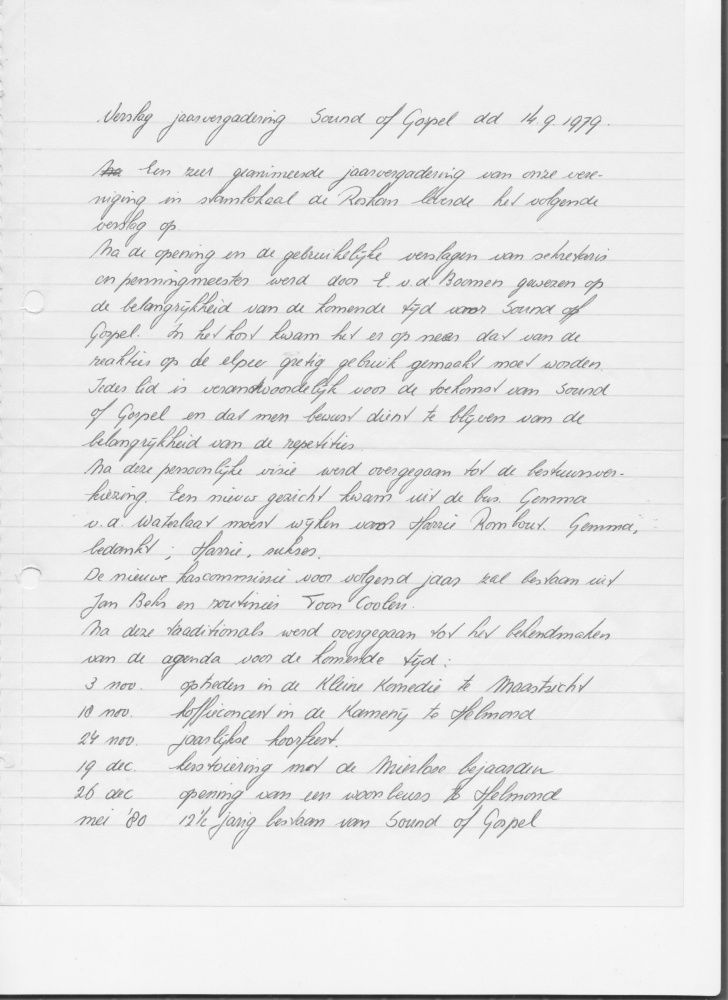 Verslag jaarvergadering Sound of Gospel dd 14.9.1979.
Na Een zeer geanimeerde jaarvergadering van onze vere-
niging in stamlokaal de Roskam leverde het volgende
verslag op.
Na de opening en de gebruikelijke verslagen van sekretaris
en penningmeester werd door E. v.d. Boomen gewezen op
de belangrijkheid van de komende tijd voor Sound of
Gospel. In het kort kwam het er op neer dat van de
reakties op de elpee gretig gebruik gemaakt moet worden.
Ieder lid is verantwoordelijk voor de toekomst van Sound
of Gospel en dat men bewust dient te blijven van de
belangrijkheid van de repetities.
Na deze persoonlijke visie werd overgegaan tot de bestuursver-
kiezing. Een nieuw gezicht kwam uit de bus. Gemma
v.d. Waterlaat moest wijken voor Harrie Rombout. Gemma,
bedankt; Harrie, sukses.
De nieuwe kascommissie voor volgend jaar zal bestaan uit
Jan Beks en routinier Toon Coolen.
Na deze traditionals werd overgegaan tot het bekendmaken
van de agenda voor de komende tijd:
3 nov. optreden in de Kleine Komedie te Maastricht
18 nov. koffieconcert in de Kamenij te Helmond
24 nov. jaarlijkse koorfeest.
19 dec. kerstviering met de Mierlose bejaarden
26 dec opening van een woonbeurs te Helmond
mei '80 12½ jarig bestaan van Sound of Gospel